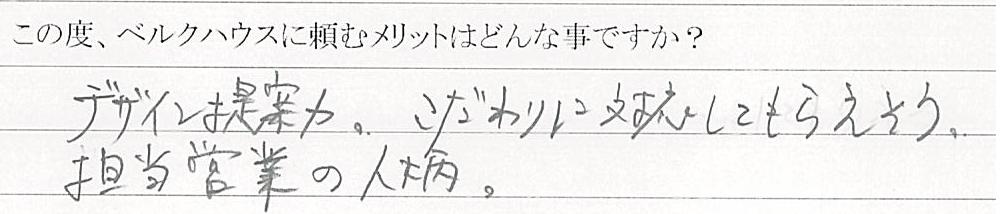 この度、ベルクハウスに頼むメリットはどんな事ですか？
デザイン提案力。こだわりに対応してもらえそう。
担当営業の人柄。